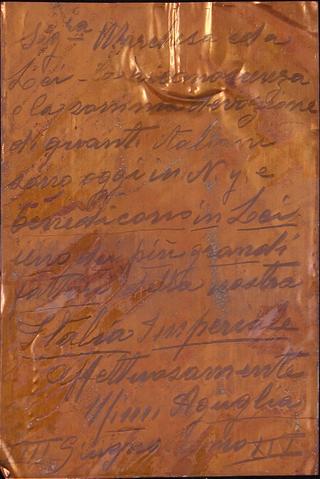 Sig.ra Marchesa ed a
Lei - la riconoscenza
e la somma devozione
di quanti Italiani
sono oggi in N. Y. e
benedicono in Lei
uno dei più grandi
fattori della nostra
Italia Imperiale
Affettuosamente
Aguglia
III Giugno Anno